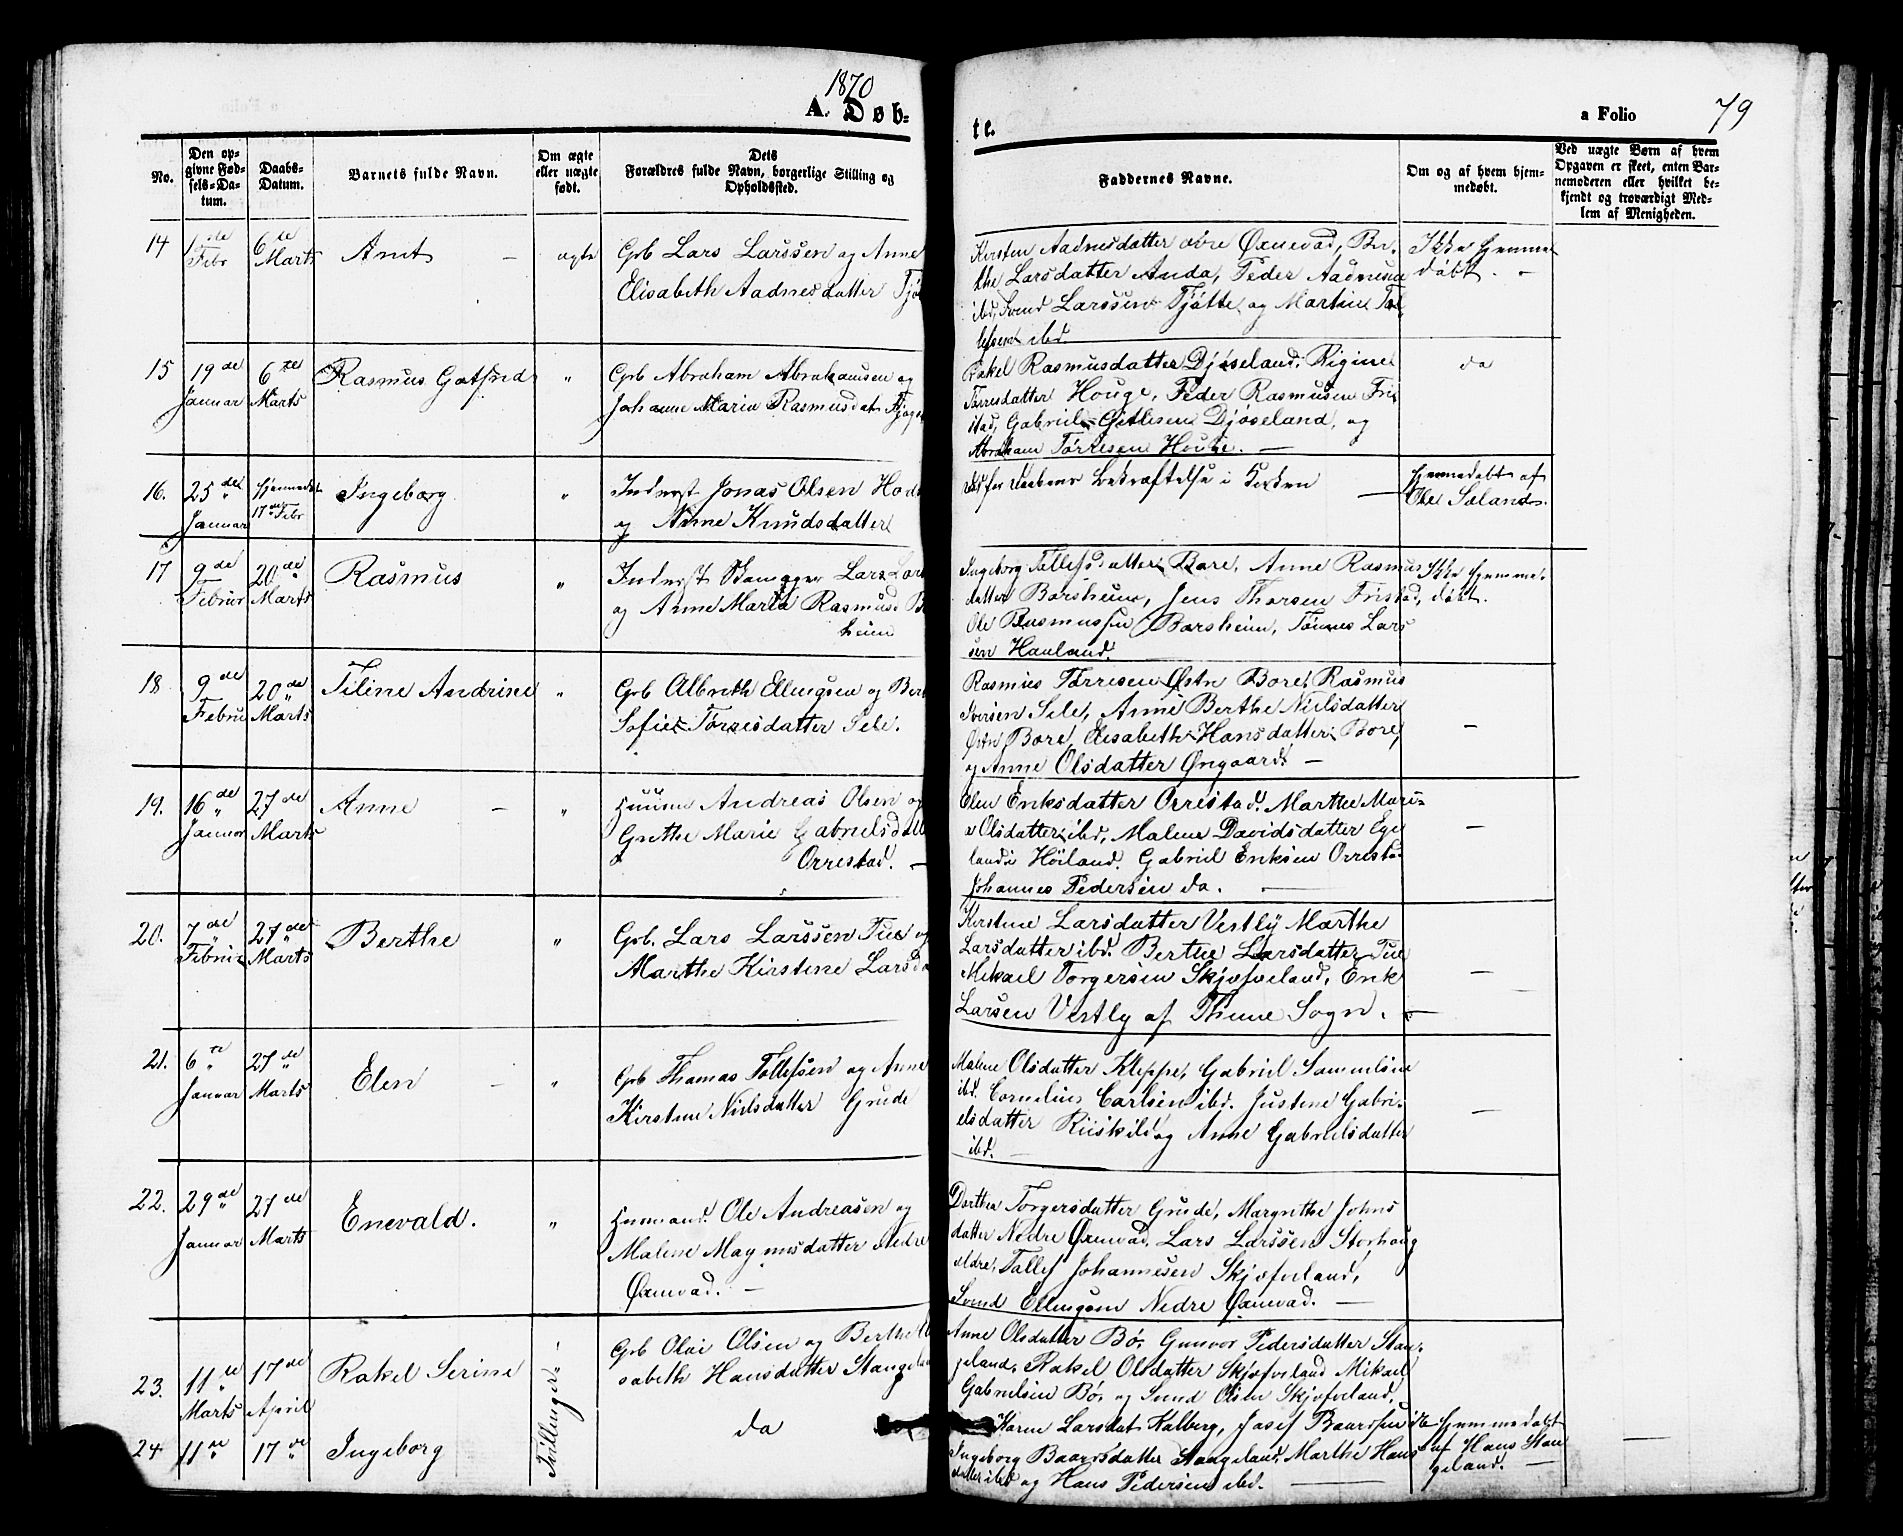 1870
A. Døb-
te.
a Folio
79
No.
Den op-
givne Fød-
sels-Da-
tum.
Daabs-
Datum.
Barnets fulde Navn.
Om ægte
eller uægte
født.
Dets
Forældres fulde Navn, borgerlige Stilling og
Opholdssted.
Faddernes Navne.
Om og af hvem hjem-
medøbt.
Ved uægte Børn af hvem
Opgaven er skeet, enten Bar-
nemoderen eller hvilket be-
kjendt og troværdigt Med-
lem af Menigheden.
14
1de
Febr
6te
Marts
Arnt
ægte
Grb Lars Larssen og Anne
Elisabeth Aadnesdatter
Kirsten Aadnesdatter øvre Øxnevad, Ber-
the Larsdatter Anda, Peder
ibd, Svend Larssen Tjøtte, og Martin
ibd.
Ikke hjemme
døbt. -
15
19de
Januar
6te
Marts
Rasmus Gotfred
"
Grb Abraham Abrahamsen og
Johanne Maria Rasmusdat
Rakel Rasmusdatter Djøseland, Rigine
Torresdatter Houge, Peder Rasmusen Fri
stad, Gabriel Gitlesen Djøseland, og
Abraham Tørresen Houge. —
da
16.
25de
Januar
Hjemmedøbt
17de Febr
Ingeborg
"
Inderst Jonas Olsen
og Anne Knudsdatter
Bekræftelse i
Hjemmedøbt af
Ole Sæland.
17
9de
Februr
20de
Marts
Rasmus
"
Inderst Lars
og Anne Maria Rasmusd
heim
Ingeborg Tollefsdatter Bore, Anne Rasmus
datter Borsheim, Jens Thorsen Fristad,
Ole Rasmussen Borsheim, Tønnes Lars
sen Hauland.
Ikke hjemme-
døbt.
18
9de
Febru
20de
Marts
Tiline Andrine
"
Grb Albreth Ellingsen og
Sofie Tørresdatter Sele.
Rasmus Tørresen Østre Bore, Rasmus
Iversen Sele, Anne Berthe Nielsdatter
Østre Bore, Elisabeth Hansdatter Bore,
og Anne Olsdatter Øngaard. —
—
19.
16de
Januar
27de
Marts
Anne -
"
Andreas Olsen og
Grethe Marie Gabrielsdatt
Orrestad. —
Elen Eriksdatter Orrestad. Marthe Mari-
e Olsdatter ibd, Malene Davidsdatter Ege
land i Høiland. Gabriel Eriksen Orresta
Johannes Pedersen da. —
—
20.
7de
Februr
27de
Marts
Berthe
"
Grb. Lars Larssen Tue og
Marthe Kirstine Larsda
Kirstine Larsdatter Vestly Marthe
Larsdatter ibd. Berthe Larsdatter Tue
Mikael Torgersen Skjæveland, Erik
Larsen Vestly af Thime Sogn. —
—
21.
6te
Januar
27de
Marts
Elen -
"
Grb Thomas Tollefsen og Anne
Kirstine Nielsdatter Grude
Malene Olsdatter Kleppe, Gabriel Samuelsen
ibd. Cornelius Carlsen ibd. Justine Gabri-
elsdatter og Anne Gabrielsdatter
ibd. —
—
22.
29de
Januar
27de
Marts
Enevald.
"
Ole Andreasen og
Malene Magnusdatter Nedre
Øxnevad. —
Dorthea Torgersdatter Grude, Margrethe Johns
datter Nedre Øxnevad, Lars Larssen Storhaug
ældre, Tollef Johannesen Skjæveland,
Svend Ellingsen Nedre Øxnevad. —
23.
11te
Marts
17de
April
Rakel Serine
Tvillinger
Grb Olai Olsen og Berthe Eli
sabeth Hansdatter Stangeland
Anne Olsdatter Bø, Gunvor Pedersdatter Stan-
geland. Rakel Olsdatter Skjæveland Mikael
Gabrielsen Bø, og Svend Olsen Skjæveland.
24
11te
17de
Ingeborg
da
Karen Larsdat Kalberg, Josef Baardsen ib
Ingeborg Baardsdatter Stangeland, Marthe Hans
datter ibd og Hans Pedersen ibd. —
Hjemmedøbt
af Hans Stan
geland. —
—